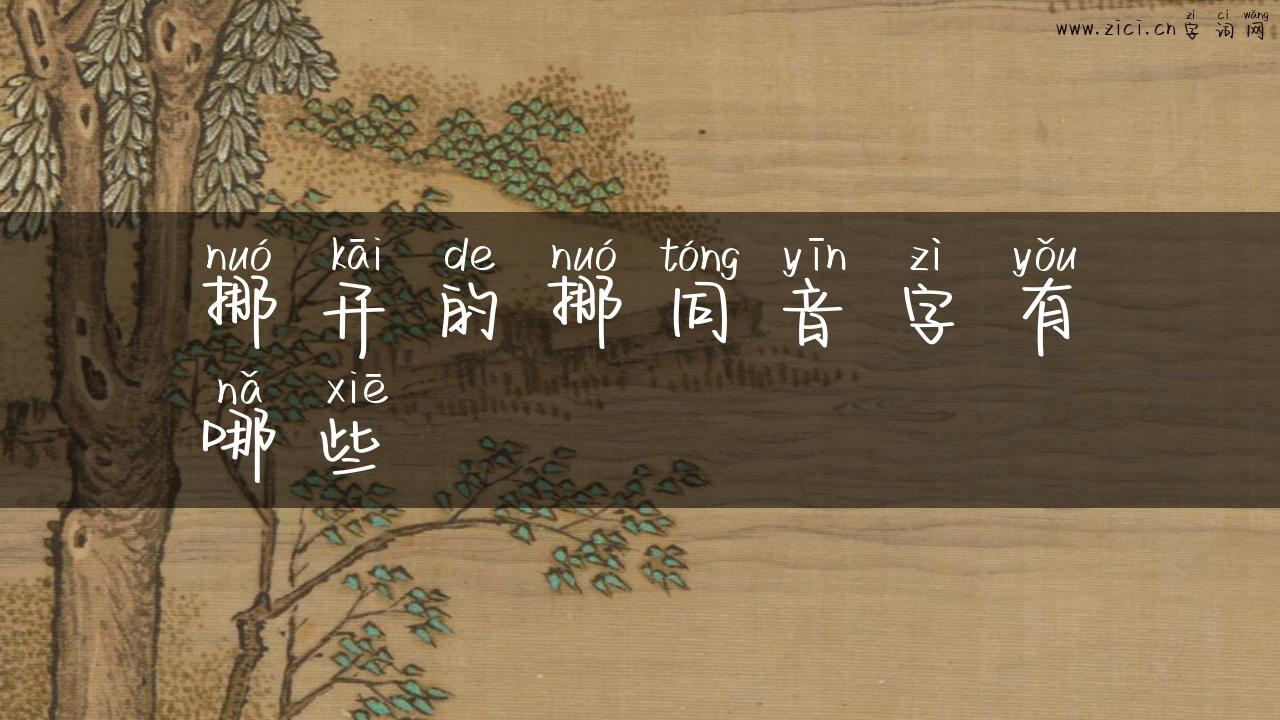 zì cí wǎng
www.zici.cn 字词网
nuó kāi de nuó tóng yīn zì yǒu
挪开的挪同音字有
nǎ xiē
哪些